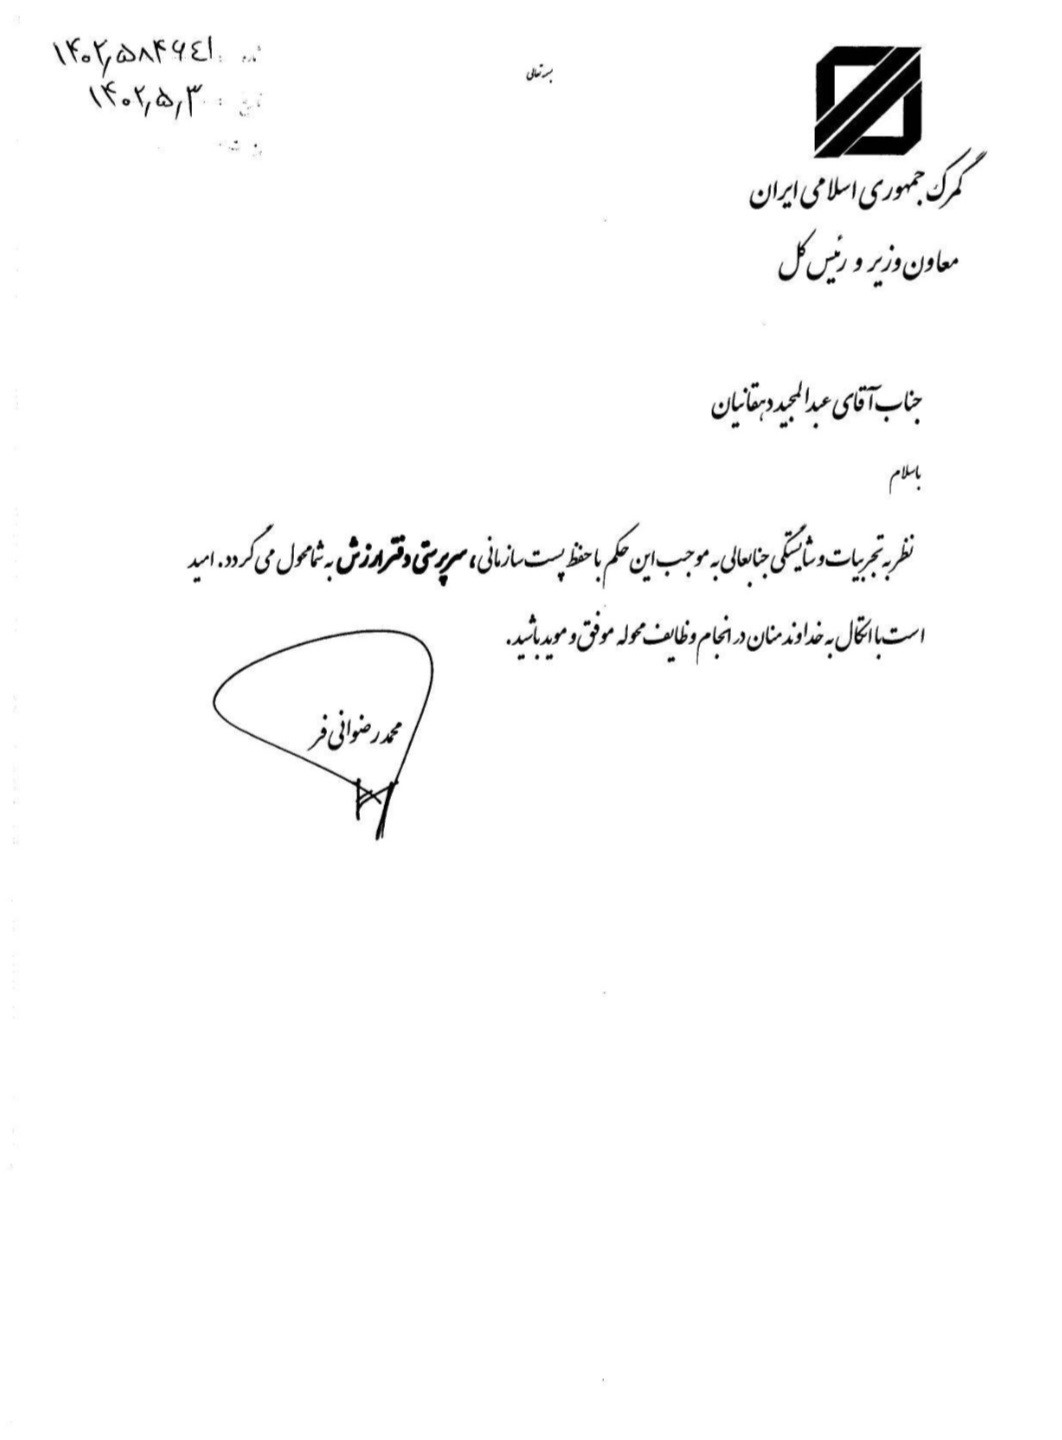 بسمه تعالی
شماره: ۱۴۰۲,۵۸۴۶۴۱
تاریخ: ۱۴۰۲,۵,۳
گمرک جمهوری اسلامی ایران
معاون وزیر و رئیس کل
جناب آقای عبدالمجید دهقانیان
باسلام
نظر به تجربیات و شایستگی جنابعالی به موجب این حکم با حفظ پست سازمانی، سرپرستی دفتر ارزش به شما محول می گردد. امید
است با اتکال به خداوند منان در انجام وظایف محوله موفق و موید باشید.
محمد رضوانی فر